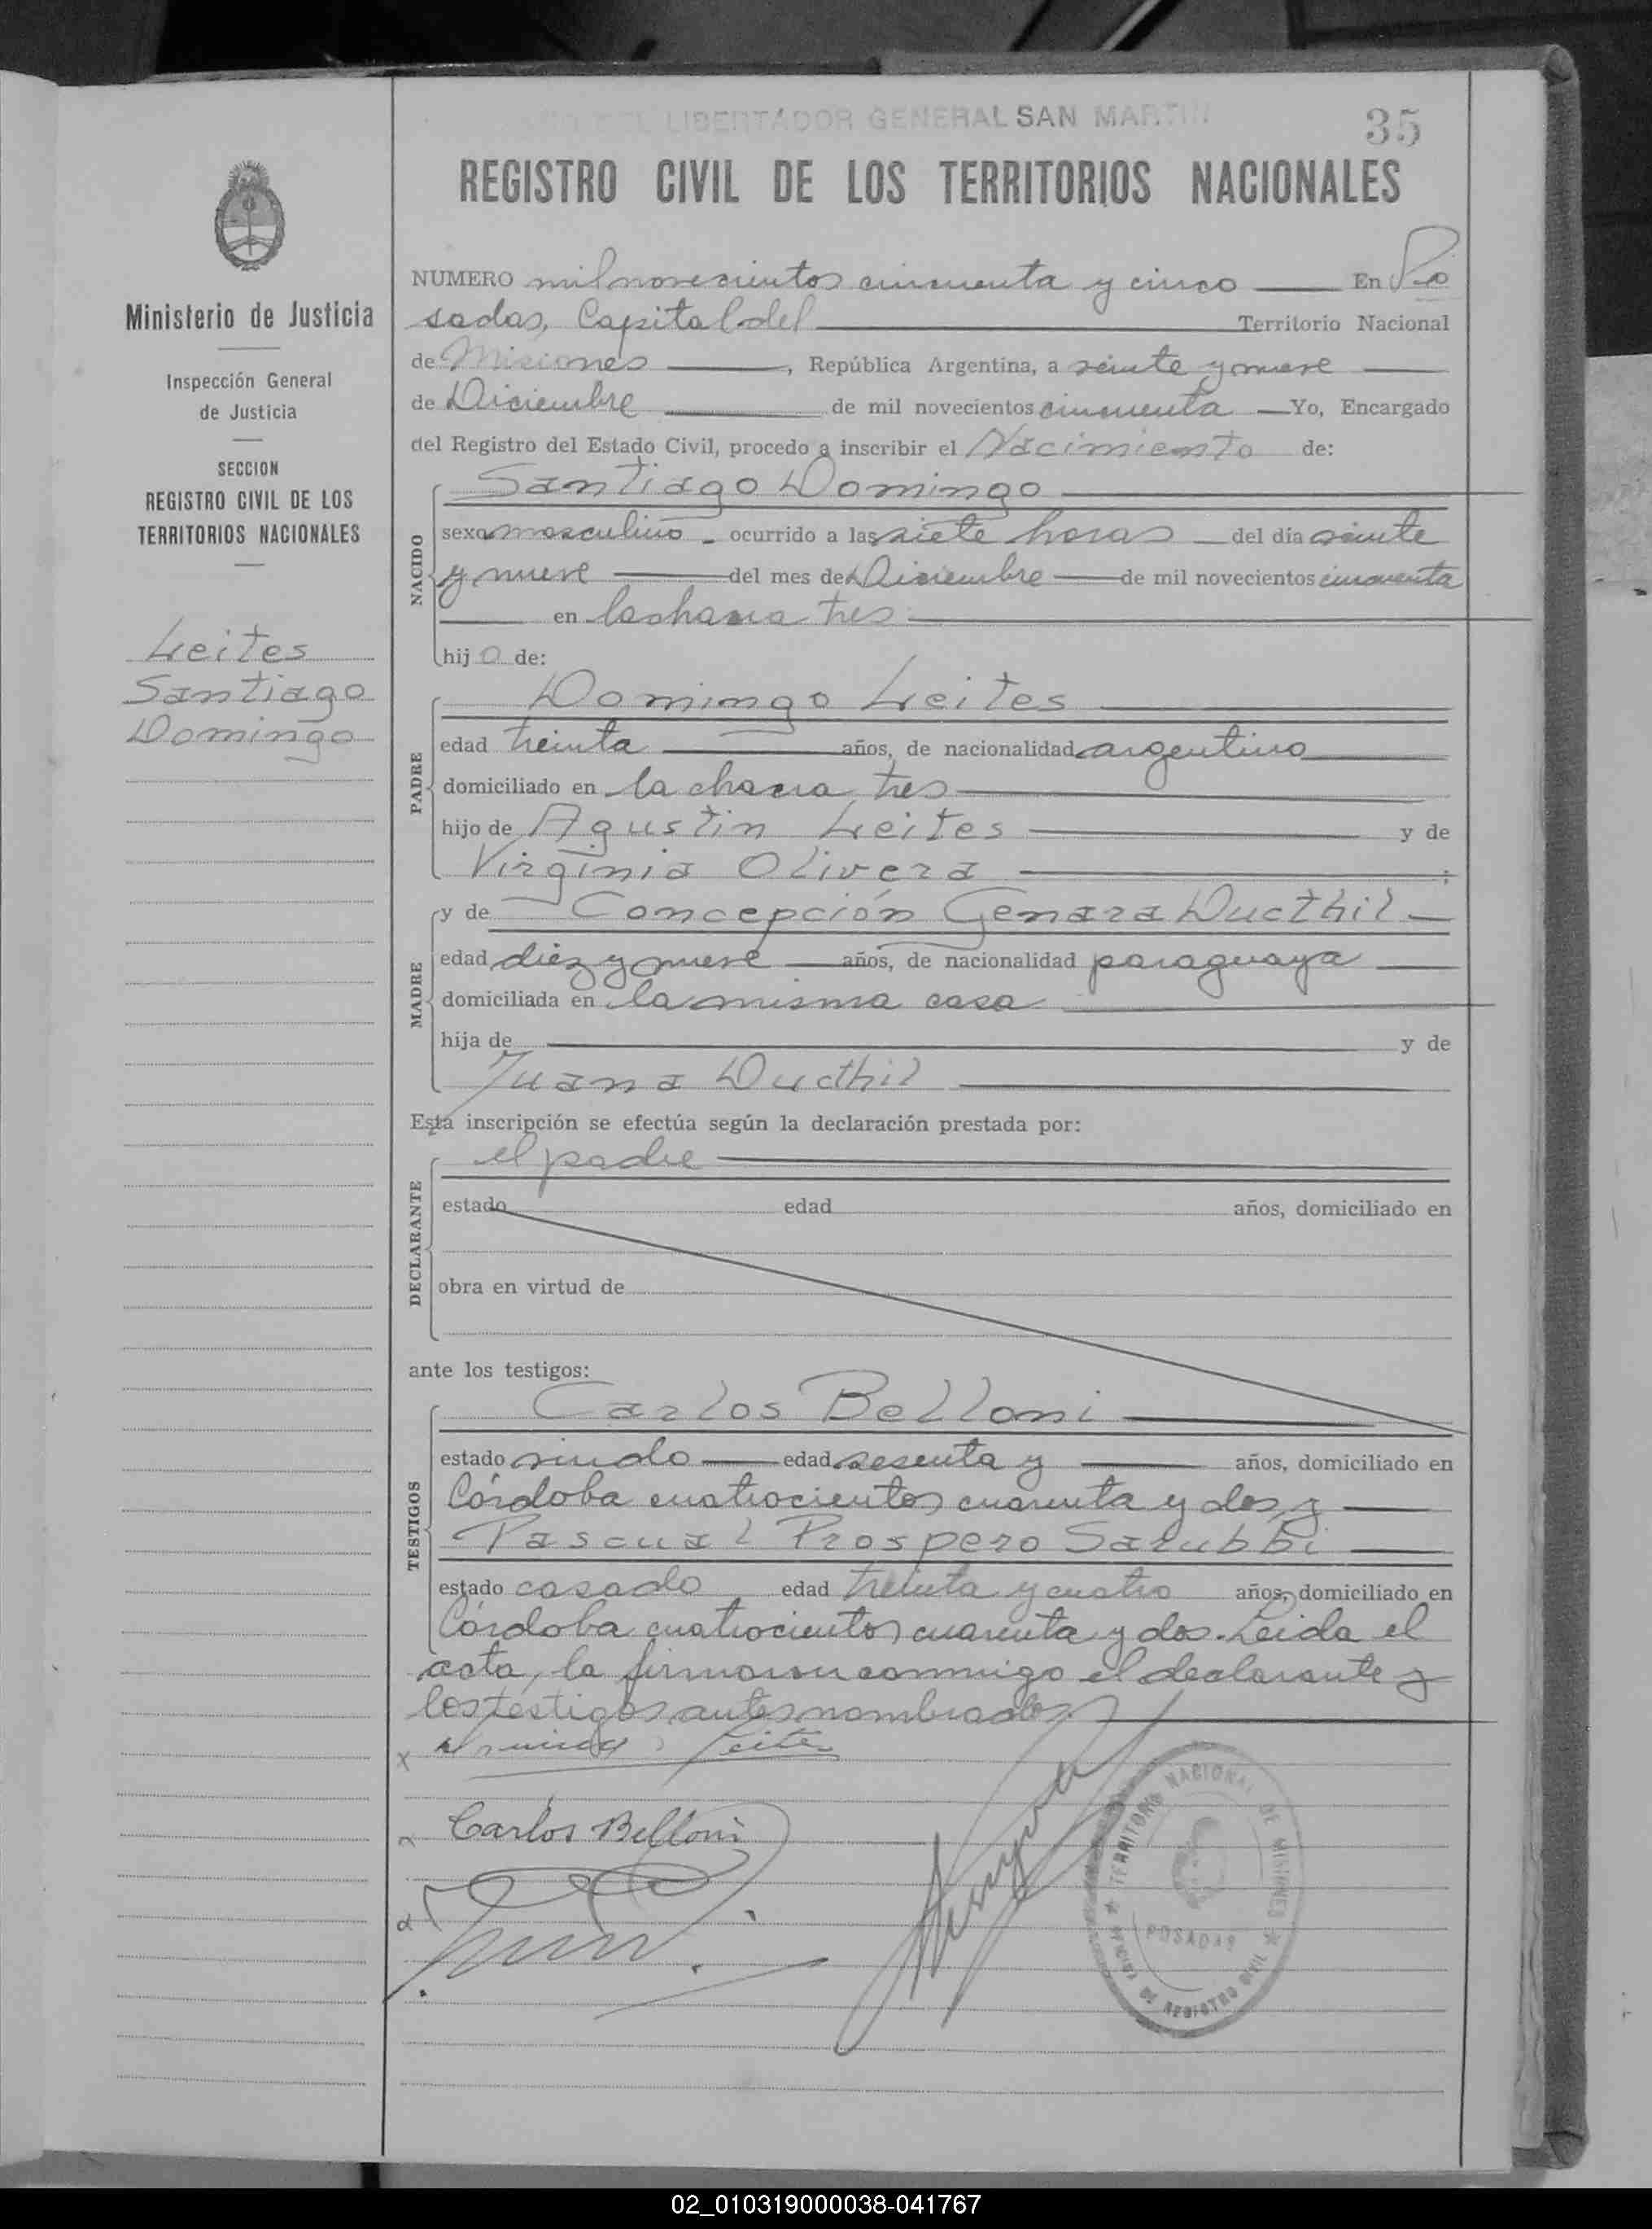 AÑO DEL LIBERTADOR GENERAL SAN MARTIN
35
REGISTRO CIVIL DE LOS TERRITORIOS NACIONALES
Ministerio de Justicia
Inspección General
de Justicia
SECCION
REGISTRO CIVIL DE LOS
TERRITORIOS NACIONALES
Leites
Santiago
Domingo
NUMERO mil novecientos cincuenta y cinco En Po
sadas, Capital del Territorio Nacional
de Misiones, República Argentina, a veinte y nueve
de Diciembre de mil novecientos cincuenta Yo, Encargado
del Registro del Estado Civil, procedo a inscribir el Nacimiento de:
NACIDO
Santiago Domingo
sexo masculino ocurrido a las siete horas del día veinte
y nueve del mes de Diciembre de mil novecientos cincuenta
en la chacra tres
hijo de:
PADRE
Domingo Leites
edad treinta años, de nacionalidad argentino
domiciliado en la chacra tres
hijo de Agustin Leites y de
Virginia Olivera ;
MADRE
y de Concepción Genara Ducthil
edad diez y nueve años, de nacionalidad paraguaya
domiciliada en la misma casa
hija de y de
Juana Ducthil
Esta inscripción se efectúa según la declaración prestada por:
DECLARANTE
el padre
estado edad años, domiciliado en
obra en virtud de
ante los testigos:
TESTIGOS
Carlos Belloni
estado viudo edad sesenta y años, domiciliado en
Córdoba cuatrocientos cuarenta y dos y
Pascual Prospero Sarubbi
estado casado edad treinta y cuatro años, domiciliado en
Córdoba cuatrocientos cuarenta y dos. Leida el
acta, la firmaron conmigo el declarante y
los testigos antes nombrados.
x Leites
Carlos Belloni
TERRITORIO NACIONAL DE MISIONES
POSADAS
DE REGISTRO CIVIL
02_010319000038-041767